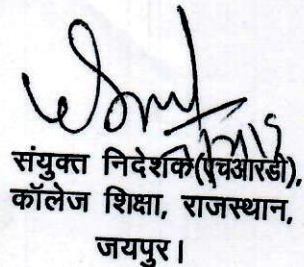 संयुक्त निदेशक(एचआरडी),
कॉलेज शिक्षा, राजस्थान,
जयपुर।